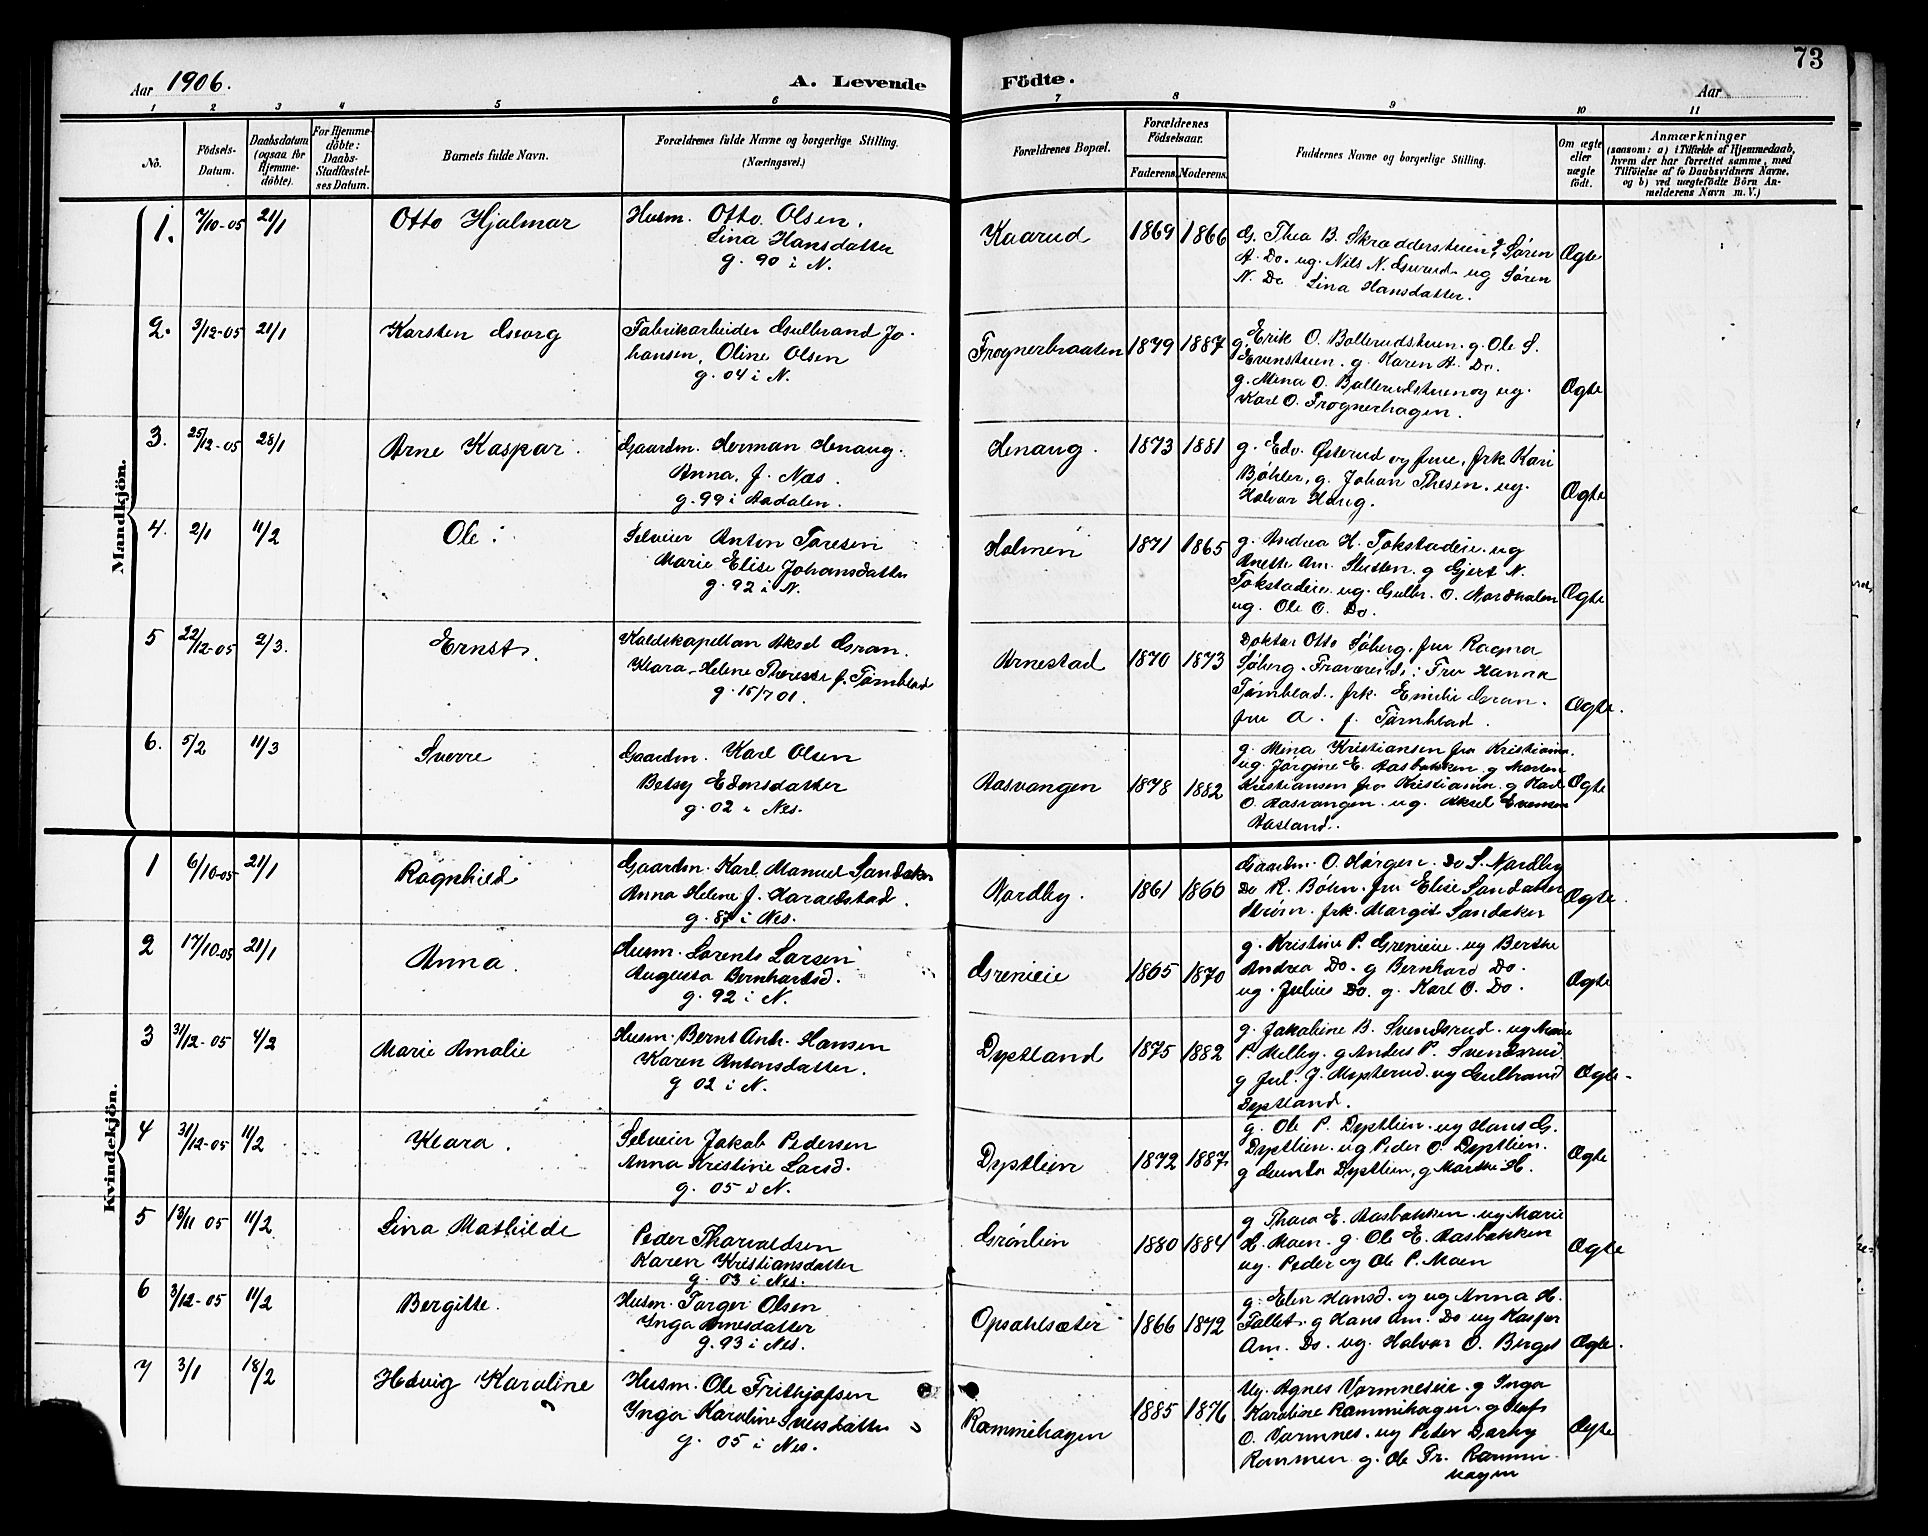 73
Aar 1906.
A. Levende Födte.
Aar
1 2 3 4 5 6 7 8 9 10 11
No.
Födsels-Datum.
Daabsdatum (ogsaa for Hjemme-döbte).
For Hjemme-döbte: Daabs-Stadfæstel-ses Datum.
Barnets fulde Navn.
Forældrenes fulde Navne og borgerlige Stilling. (Næringsvei.)
Forældrenes Bopæl.
Forældrenes Födselsaar.
Faderens. Moderens.
Faddernes Navne og borgerlige Stilling.
Om ægte eller uægte födt.
Anmærkninger
(saasom: a) i Tilfælde af Hjemmedaab, hvem der har forrettet samme, med Tilföielse af to Daabsvidners Navne, og b) ved uægtefödte Börn An-melderens Navn m. V.)
Mandkjön.
1. 7/10-05 21/1 Otto Hjalmar
Husm. Otto Olsen,
Lina Hansdatter
g. 90 i N.
Kaarud 1869 1866
G. Thea B. Skradderstuen, Søren
A. Do. ug. Nils N. ug Søren
N. Do Lina Hansdatter.
Ægte
2. 3/12-05 21/1 Karsten Georg
Fabrikarbeider Gulbrand Jo-
hansen, Oline Olsen
g. 04 i N.
Frognerbraaten 1879 1887
g. Erik O. Bollerudstuen. g. Ole S.
Evenstuen. g. Karen A. Do.
g. Mina O. Bollerudstuen og ug.
Karl O. Frognerhagen.
Ægte
3. 25/12-05 28/1 Arne Kaspar.
Gaardm. Herman Henaug.
Anna, f. Næs.
g. 99 i Aadalen.
Henaug. 1873 1881
g. Edv. Østerud og frue, frk. Kari
Bøhler, g. Johan Thesen. ug.
Halvor Haug.
Ægte
4. 2/1 11/2 Ole
Selveier Anton Toresen
Marie Elise Johansdatter
g. 92 i N.
Holmen 1871 1865
g. Andrea H. Tokstadeie. ug
Anette Am. Sletten. g Gjert N.
Tokstadeie. ug. Gulbr. O. Nordhalen
ug. Ole O. Do.
Ægte
5 22/12-05 2/3. Ernst.
Kaldskapellan Aksel Gran.
Klara Helene Therese f. Tørnblad
g. 15/7 01.
Arnestad 1870 1873
Doktor Otto Søberg. fru Ragna
Søberg. Fraværende: Fru Hanna
Tørnblad. frk. Emilie Gran.
fru A. f. Tørnblad.
Ægte.
6. 5/2 11/3 Sverre
Gaardm. Karl Olsen
Betsy Edv.sdatter
g. 02 i Nes.
Aasvangen 1878 1882
g. Mina Kristiansen fra Kristiania.
ug. Jørgine E. Aasbakken g Morten
Kristiansen fra Kristiania. g Karl
O. Aasvangen. ug. Aksel Evensen
Aasland.
Ægte
Kvindekjön.
1 6/10-05 21/1 Ragnhild
Gaardm. Karl Manuel Sandaker
Anna Helene f. Haraldstad.
g. 87 i Nes.
Nordby. 1861 1860
Gaardm. O. Hørgen. Do S. Nordby
Do K. Bøhn. fru Elise Sandaker
Strøm. frk. Margit Sandaker
Ægte.
2 17/10-05 21/1 Anna.
Husm. Lorents Larsen
Augusta Bernhartsd.
g. 92 i N.
Grenieie 1865 1870
g. Kristine P. Grenieie. ug Berthe
Andrea Do. g Bernhard Do.
ug. Julius Do. g. Karl O. Do.
Ægte
3 31/12-05 4/2 Marie Amalie
Husm. Bernt Anh. Hansen
Karen Antonsdatter.
g 02 i N.
Dystland 1875 1882
g. Jakobine B. Svendsrud. ug Marie
P. Melby. g Anders P. Svendsrud
g Jul. J. Mysterud. ug Gulbrand
Dystland.
Ægte.
4 31/12-05 11/2 Klara.
Selveier Jakob Pedersen
Anna Kristine Larsd.
g. 05 i N.
Dystlien 1872 1887
g. Ole P. Dystlien. ug Hans G.
Dystlien. ug Peder O. Dystlien.
g Gunla Dystlien, g Marthe H.
Ægte
5 13/11 05 11/2 Lina Mathilde
Peder Thorvaldsen
Karen Kristiansdatter
g. 03 i Nes.
Grønlien 1880 1884
g Thora E. Aasbakken. ug Marie
H. Moen. g. Ole E. Aasbakken
ug. Peder og Ole P. Moen
Ægte
6 3/12-05 11/2 Bergitte.
Husm. Torger Olsen
Inga datter
g. 93 i Nes.
Opsahlsæter 1866 1872
g. Elen Hansd. og ug Anna H.
Follet. g Hans Am. Do ug Kasper
Am. Do. ug. Halvor O. Berget
Ægte.
7 3/1 18/2 Hedvig Karoline
Husm. Ole Frithjofsen
Inga Karoline datter
g. 05 i Nes.
Rommihagen 1885 1876
Ug. Agnes Vormneseie. g Inga
Karoline Rommihagen. g Olaf
O. Vormnes. ug Peder
Rommen g. Ole Fr. Rommi-
hagen
Ægte